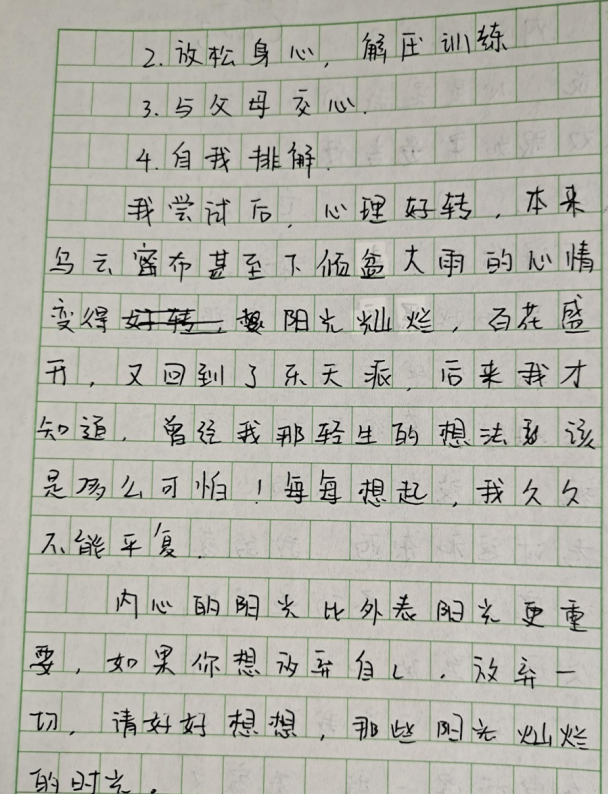 2.放松身心，解压训练
3.与父母交心.
4.自我排解.
我尝试后，心理好转，本来
乌云密布甚至下倾盆大雨的心情
变得好转，阳光灿烂，百花盛
开，又回到了乐天派，后来我才
知道，曾经我那轻生的想法该
是多么可怕！每每想起，我久久
不能平复.
内心的阳光比外表阳光更重
要，如果你想放弃自己，放弃一
切，请好好想想，那些阳光灿烂
的时光.